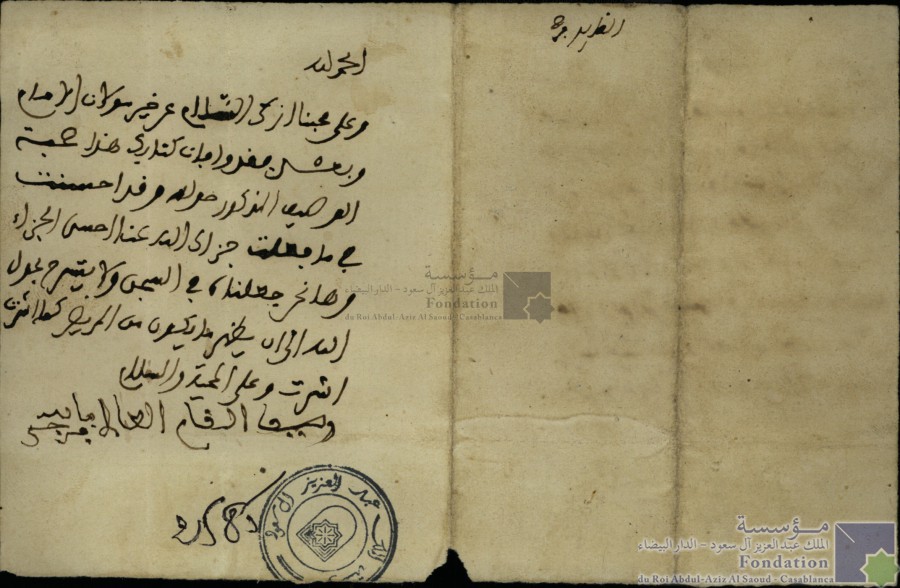 الحمد لله
وعلى محبنا ازكى السلام عن خير مولانا الامام
وبعد فقد وافانا كتابك هذا صحبة
الوصيف المذكور حوله وقد احسنت
في ما فعلت جزاك الله عنا احسن الجزاء
وها نحن جعلناه في السجن ولا يتسرح بحول
الله الى ان يظهر ما يكون من المريض كما اشرت
اشرت وعلى المحبة والسلام
وصيف المقام العالي بالله
مؤسسة
الملك عبد العزيز آل سعود - الدار البيضاء
Fondation
du Roi Abdul-Aziz Al Saoud - Casablanca
عبد العزيز آل سعود
مؤسسة
الملك عبد العزيز آل سعود - الدار البيضاء
Fondation
du Roi Abdul-Aziz Al Saoud - Casablanca